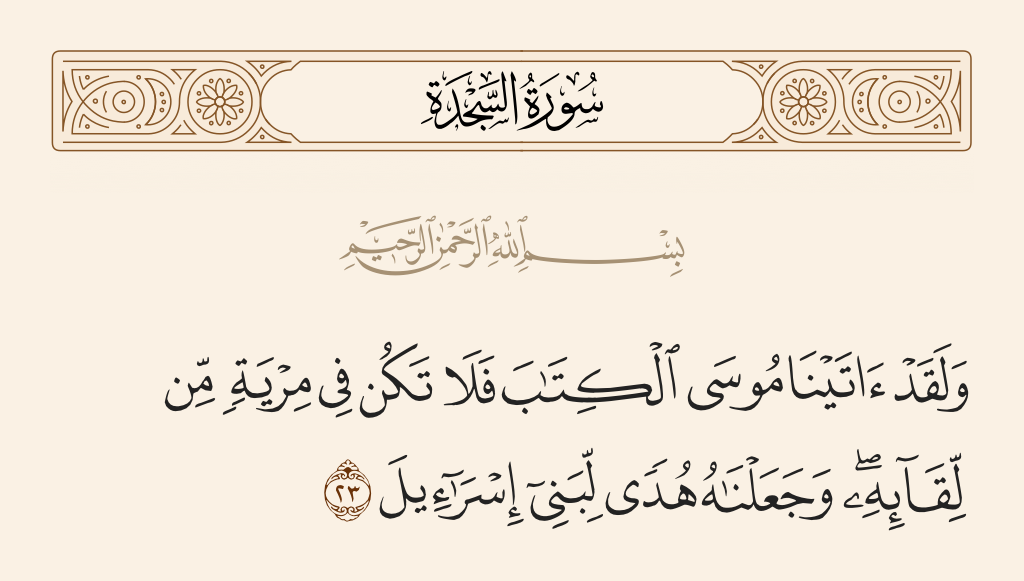 سُورَةُ السَّجْدَةِ
بِسْمِ ٱللَّهِ ٱلرَّحْمَٰنِ ٱلرَّحِيمِ
وَلَقَدْ ءَاتَيْنَا مُوسَى ٱلْكِتَٰبَ فَلَا تَكُن فِى مِرْيَةٍ مِّن
لِّقَآئِهِۦ ۖ وَجَعَلْنَٰهُ هُدًى لِّبَنِىٓ إِسْرَٰٓءِيلَ ٢٣